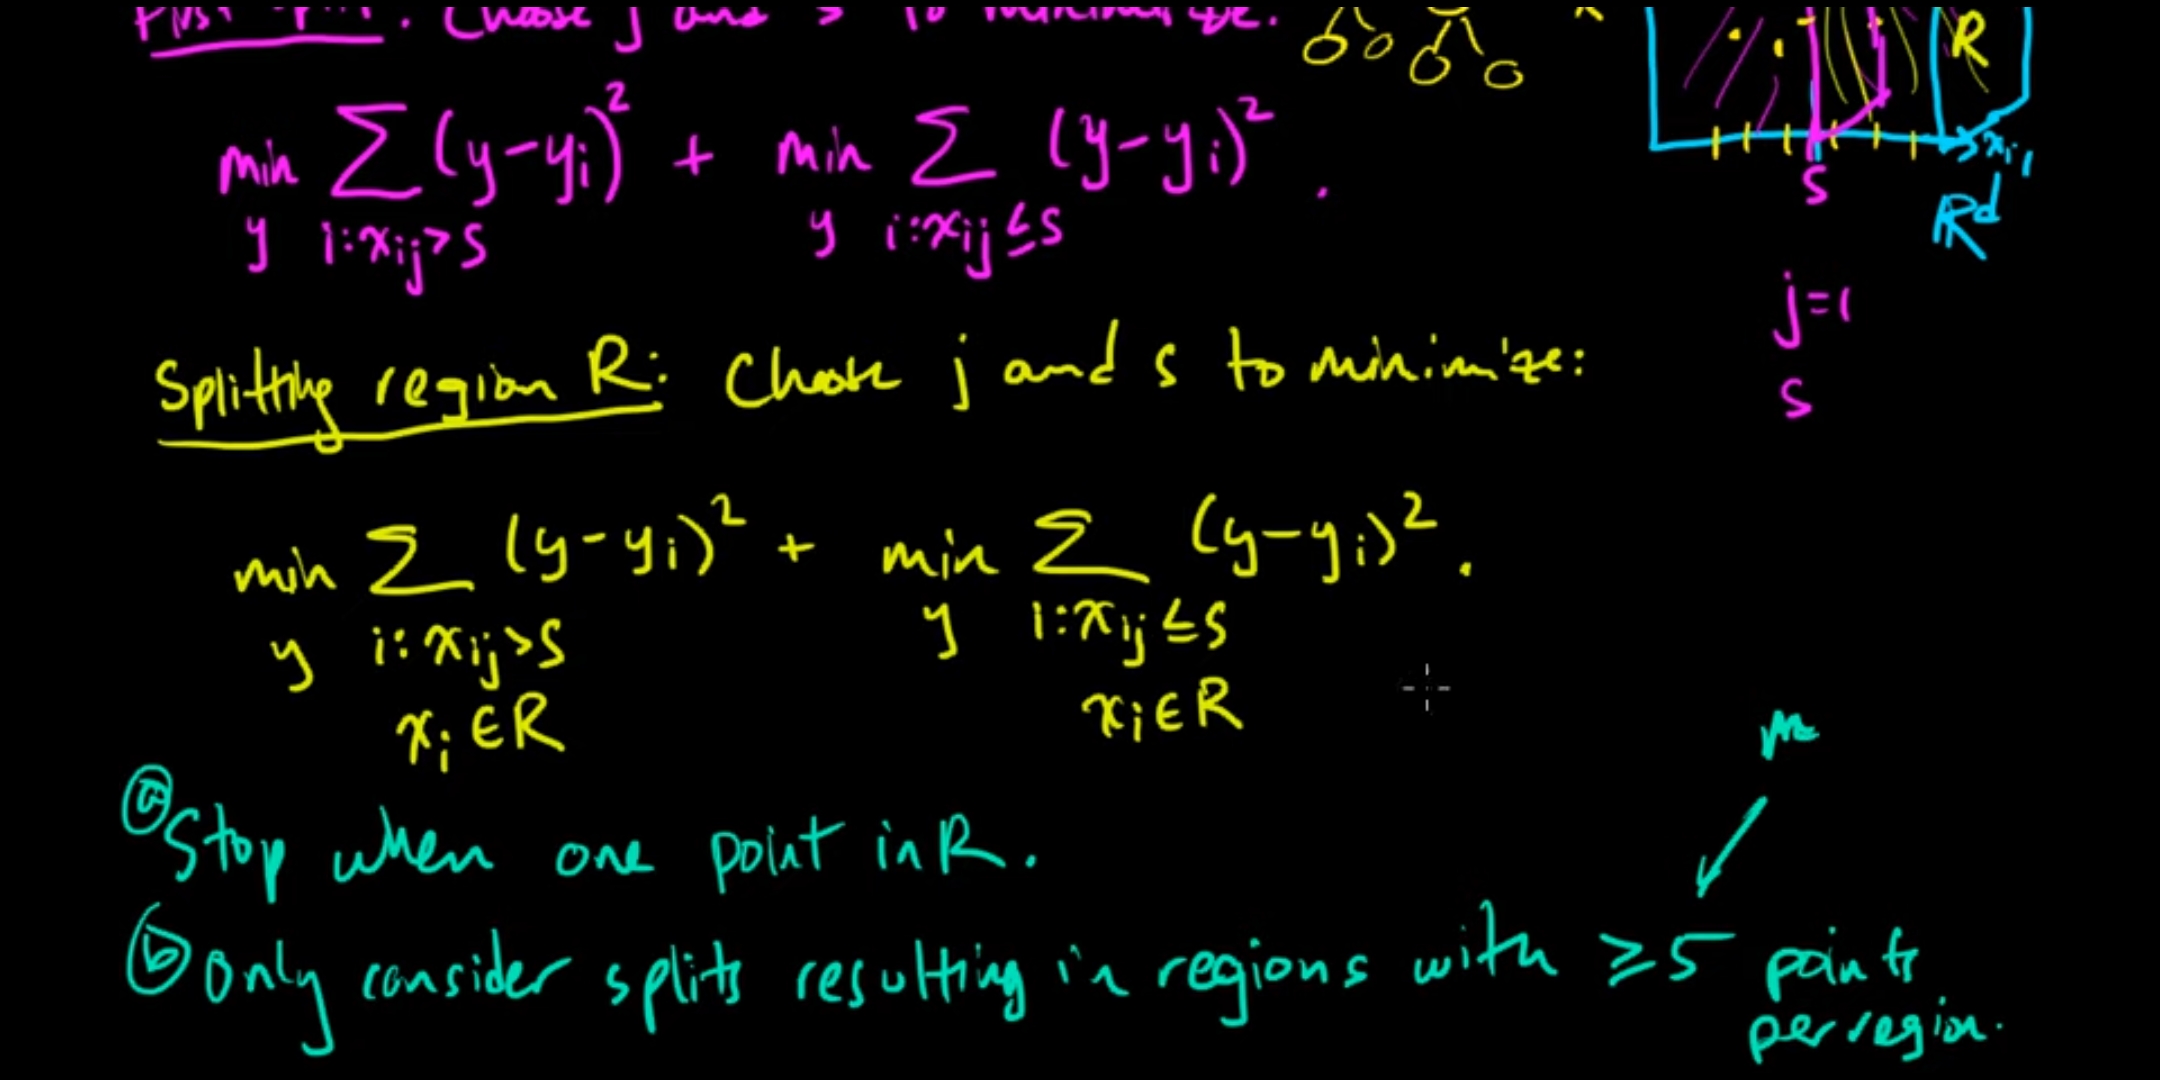 First split: Choose j and s to minimize:
min y ∑ i:xij>s (y-yi)² + min y ∑ i:xij≤s (y-yi)² .
R
xi1
s
Rd
j=1
s
Splitting region R: Choose j and s to minimize:
min y ∑ i:xij>s xi∈R (y-yi)² + min y ∑ i:xij≤s xi∈R (y-yi)² .
a Stop when one point in R.
b Only consider splits resulting in regions with ≥5 points
per region.